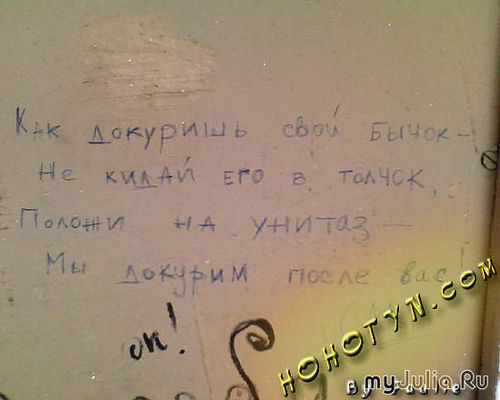 Как докуришь свой бычок —
Не кидай его в толчок,
Положи на унитаз —
Мы докурим после вас!
ок!
HOHOTYN.COM
myJulia.Ru
By